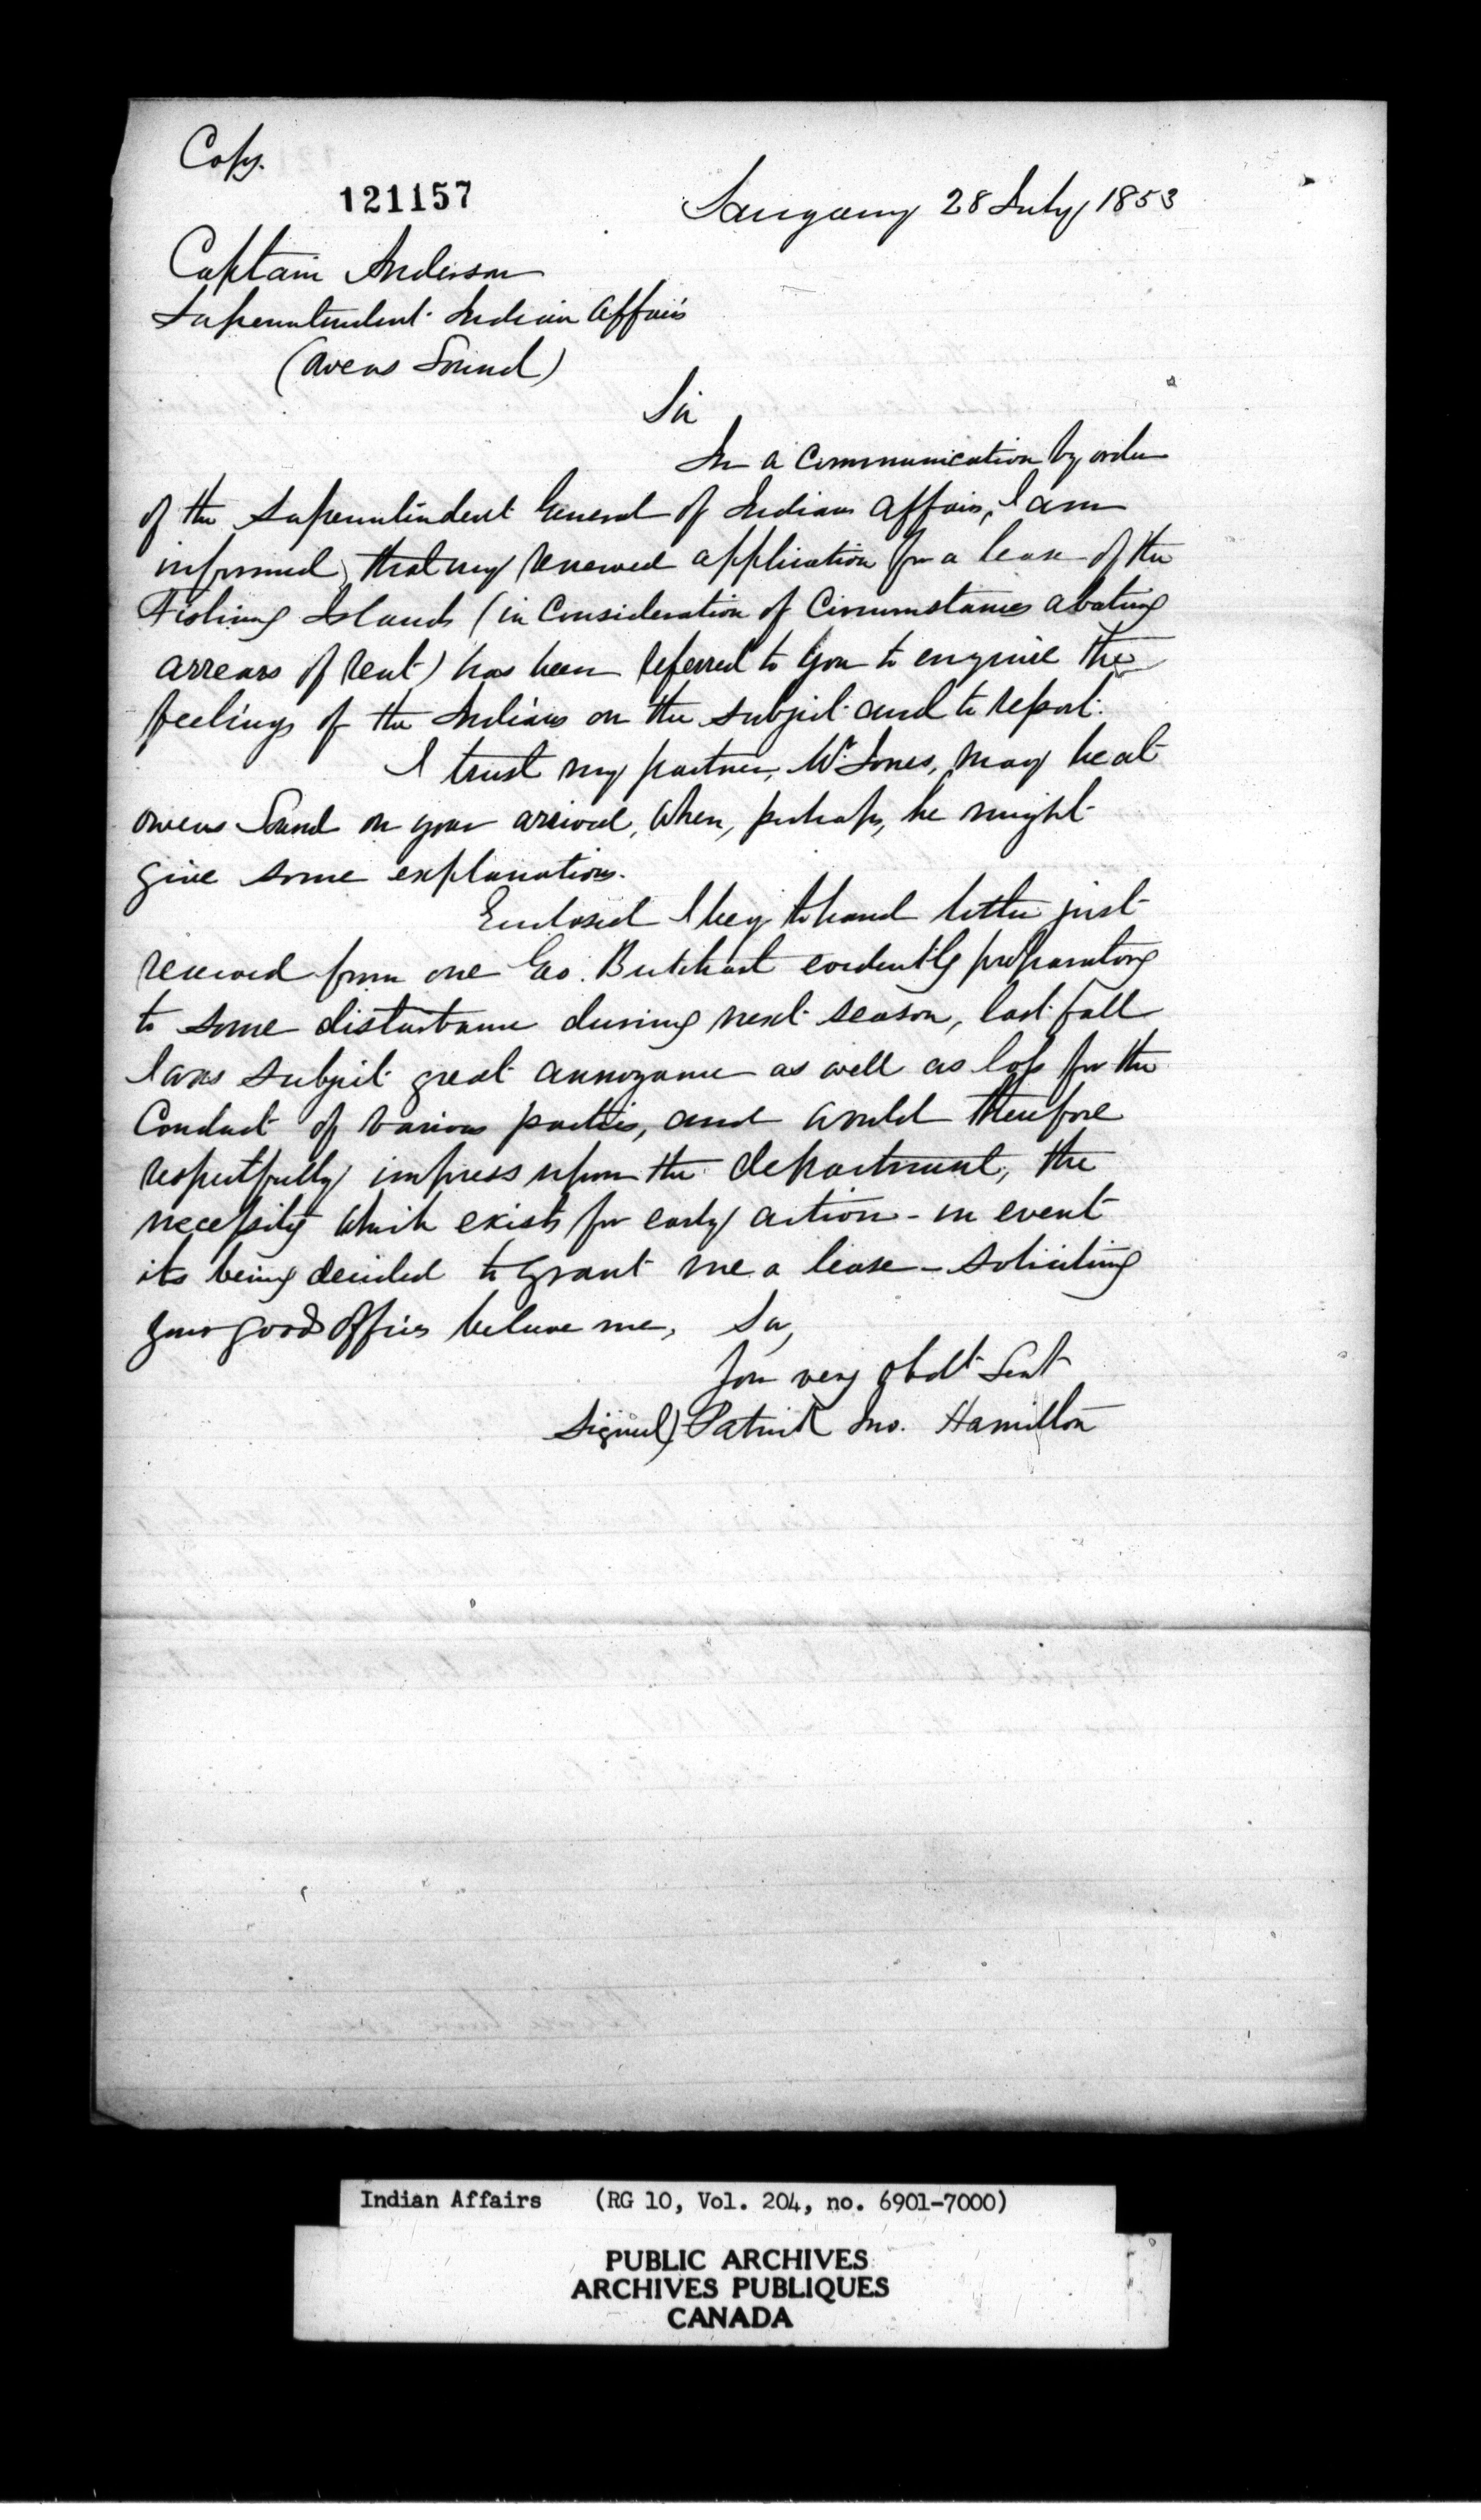 Copy.
121157
Saugeeny 28 July 1853
Captain Anderson
Superintendent Indian Affairs
(Owens Sound)
Sir
In a Communication by order
of the Superintendent General of Indian affairs, I am
informed, that my renewed application for a lease of the
Fishing Islands (in Consideration of Circumstances abating
arrears of rent) has been referred to you to enquire the
feelings of the Indians on the subject and to report.
I trust my partner, Mr Jones, may be at
Owens Sound on your arrival, when, perhaps, he might
give some explanations.
Enclosed I beg to hand letter just
received from one Geo. Butchart evidently preparatory
to some disturbance during next season, last fall
I was subject great annoyance as well as loss for the
Conduct of various parties, and would therefore
respectfully impress upon the department, the
necessity which exists for early action - in event
its being decided to grant me a lease - soliciting
your good offices believe me, Sir,
Your very obdt Servt
Signed) Patrick Jno. Hamilton
Indian Affairs (RG 10, Vol. 204, no. 6901-7000)
PUBLIC ARCHIVES
ARCHIVES PUBLIQUES
CANADA